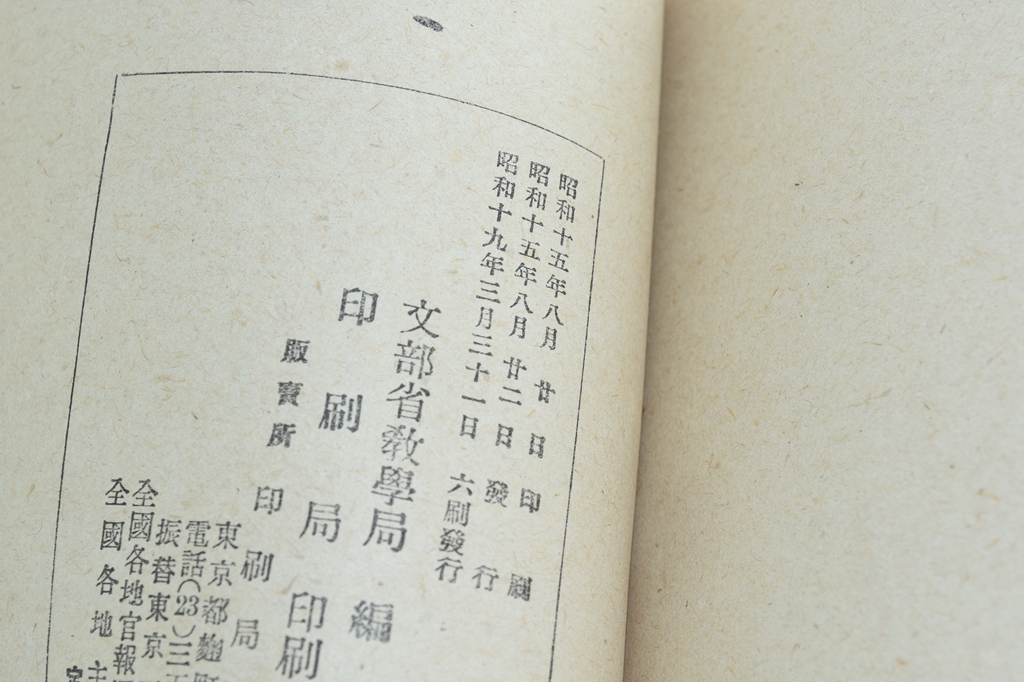 昭和十五年八月廿日印刷
昭和十五年八月廿二日發行
昭和十九年三月三十一日六刷發行
文部省敎學局編
印刷局印刷
販賣所印刷局
東京都麴町
電話(23)三五
振替東京
全國各地官報
全國各地主